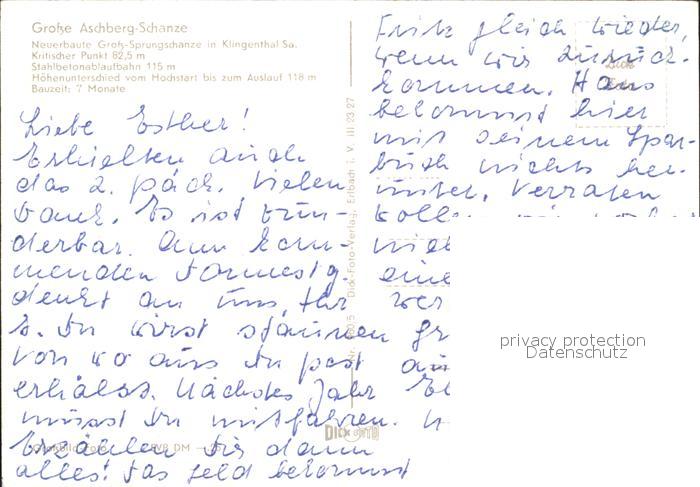 Große Aschberg-Schanze
Neuerbaute Groß-Sprungschanze in Klingenthal Sa.
Kritischer Punkt 82,5 m
Stahlbetonablaufbahn 115 m
Höhenunterschied vom Hochstart bis zum Auslauf 118 m
Bauzeit: 7 Monate
Liebe Esther!
Erhielten auch
das 2. Päck. Vielen
Dank. Es ist wun-
derbar. Am kom-
menden Donnerstg.
denkt an uns, Ihr
Du wirst staunen
von wo aus Du post
erhälst. Nächstes Jahr
musst Du mitfahren.
Erzählen Dir dann
alles! Das Geld bekommt
Fritz gleich wieder,
wenn wir zurück-
kommen. Hans
bekommt hier
mit seinem Spar-
buch nichts her-
unter. Verraten
viel
eine
wer
Dick-Foto-Verlag, Erlbach i. V. III 23 27
privacy protection
Datenschutz